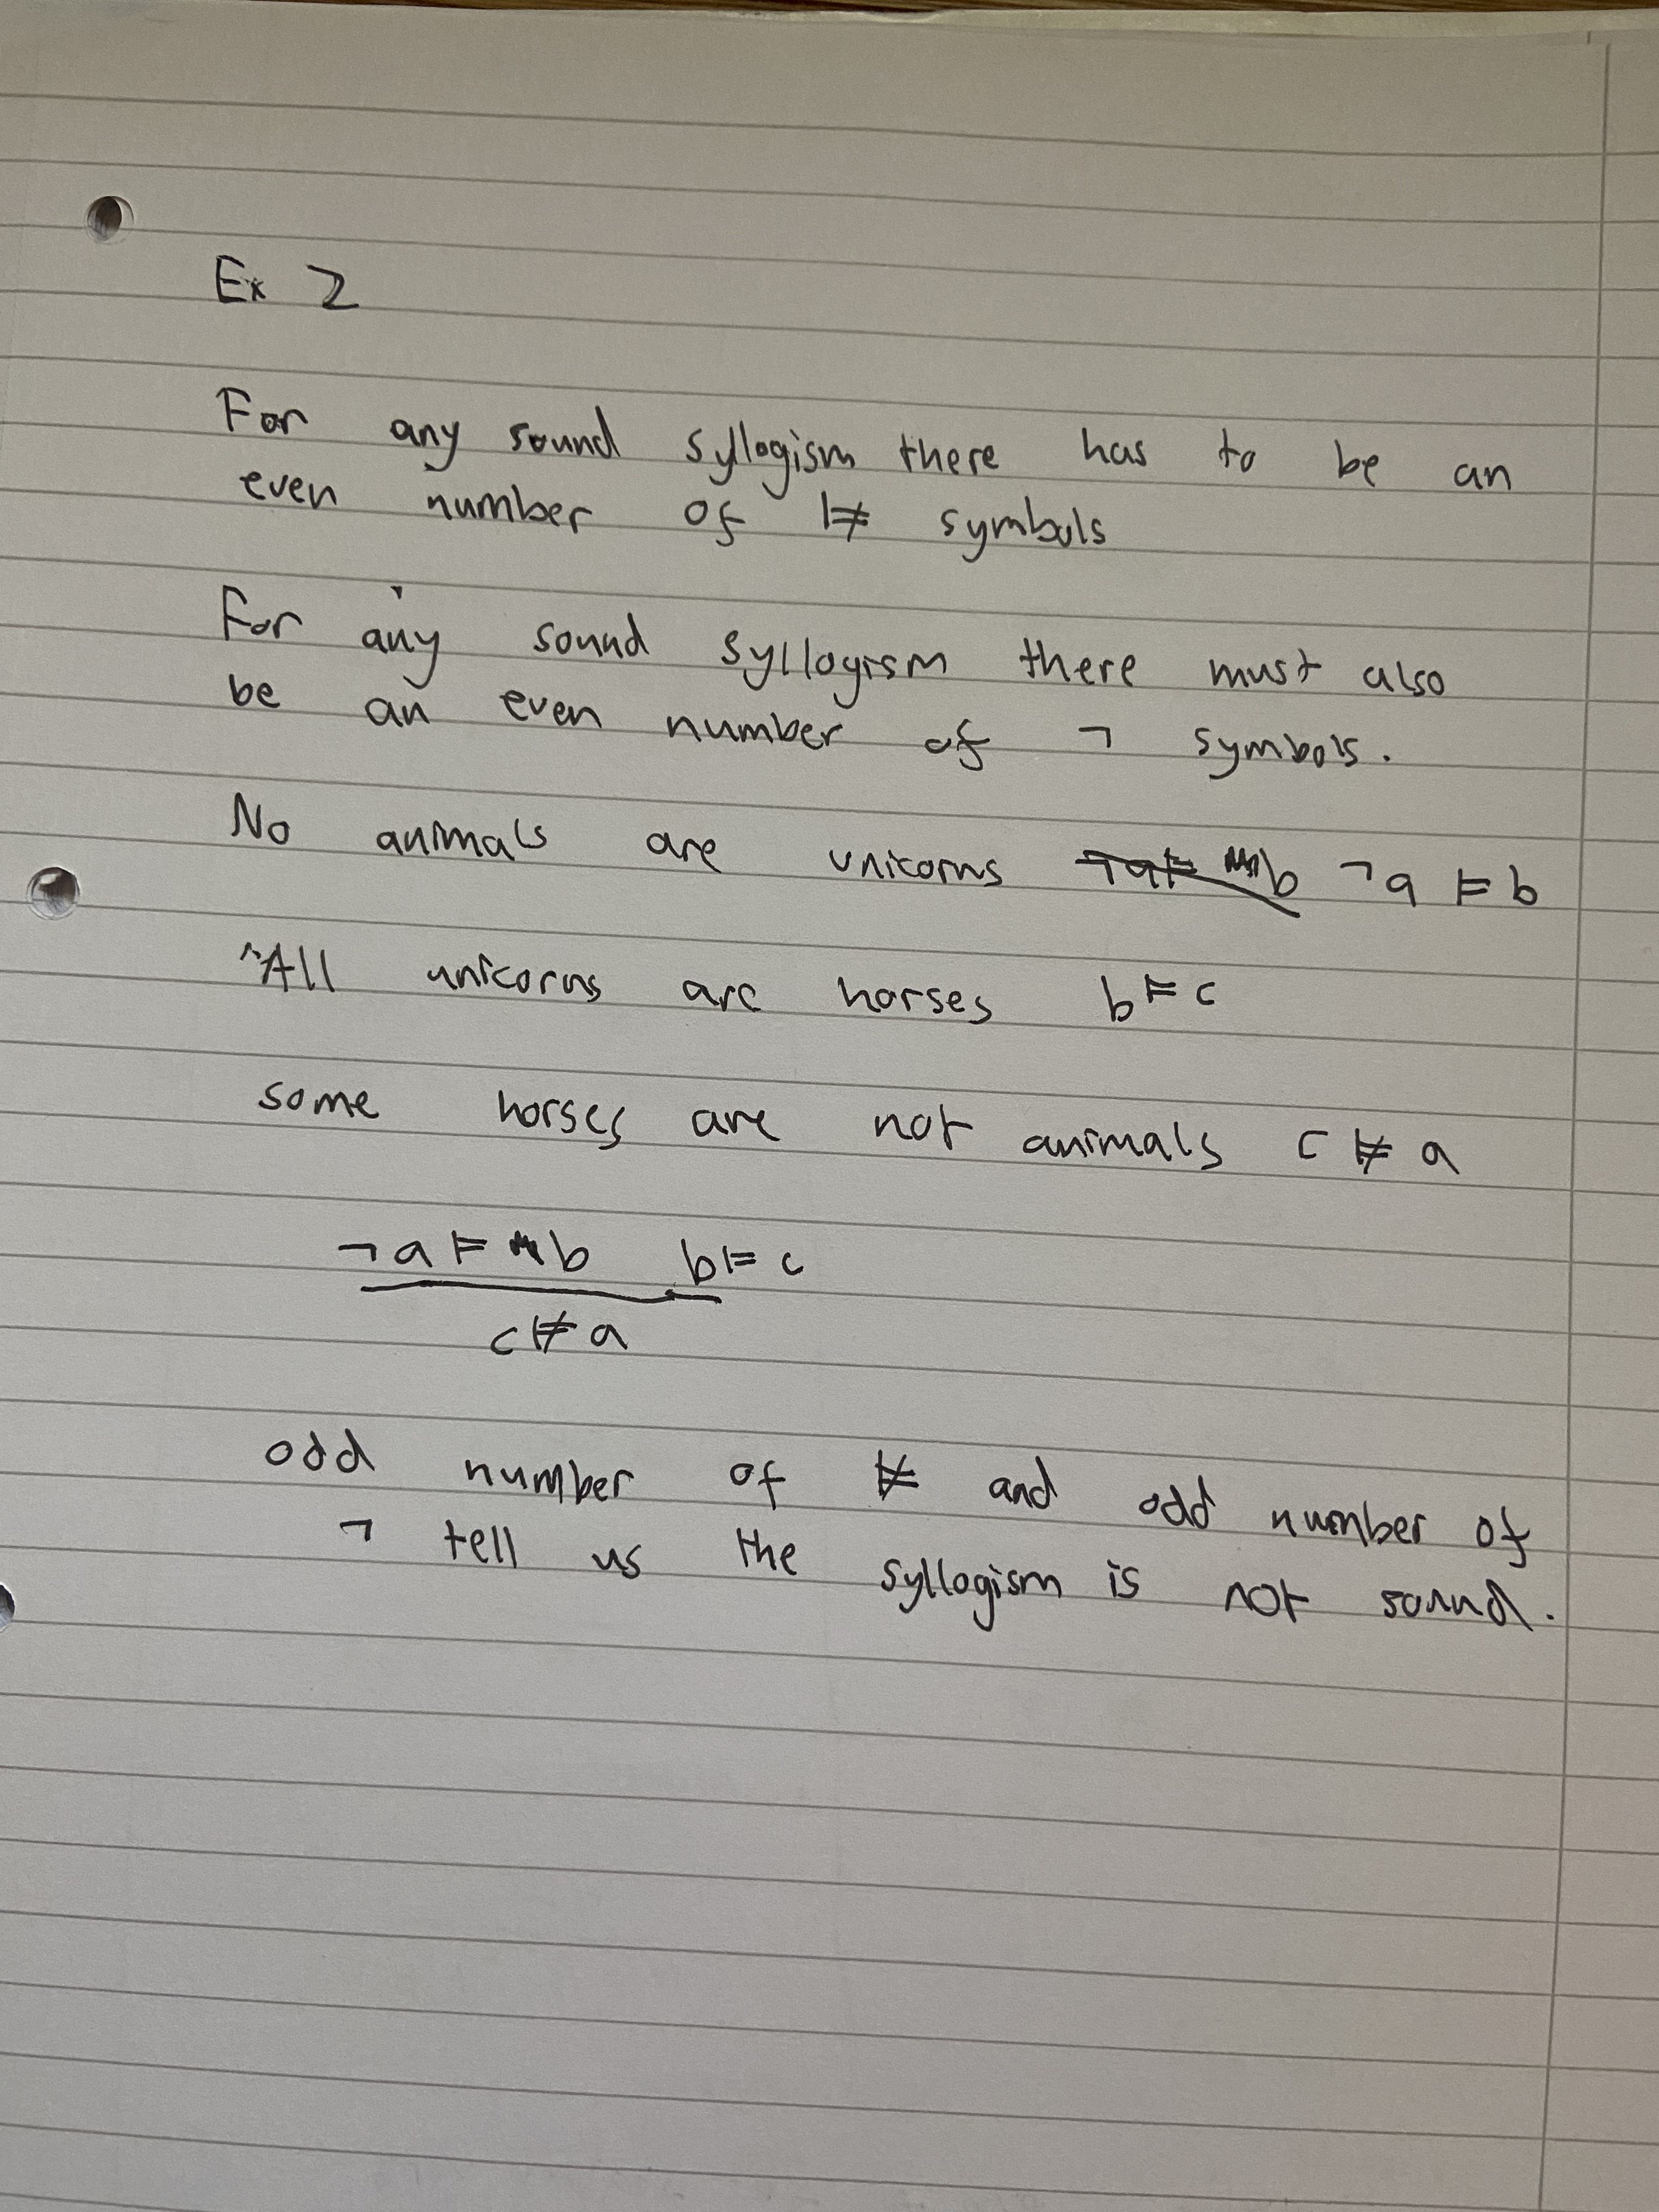 Ex 2
For any sound syllogism there has to be an
even number of ⊭ symbols
For any sound syllogism there must also
be an even number of ¬ symbols.
No animals are unicorns ¬a ⊨ b
All unicorns are horses b ⊨ c
some horses are not animals c ⊭ a
¬a ⊨ b b ⊨ c
c ⊭ a
odd number of ⊭ and odd number of
¬ tell us the syllogism is not sound.